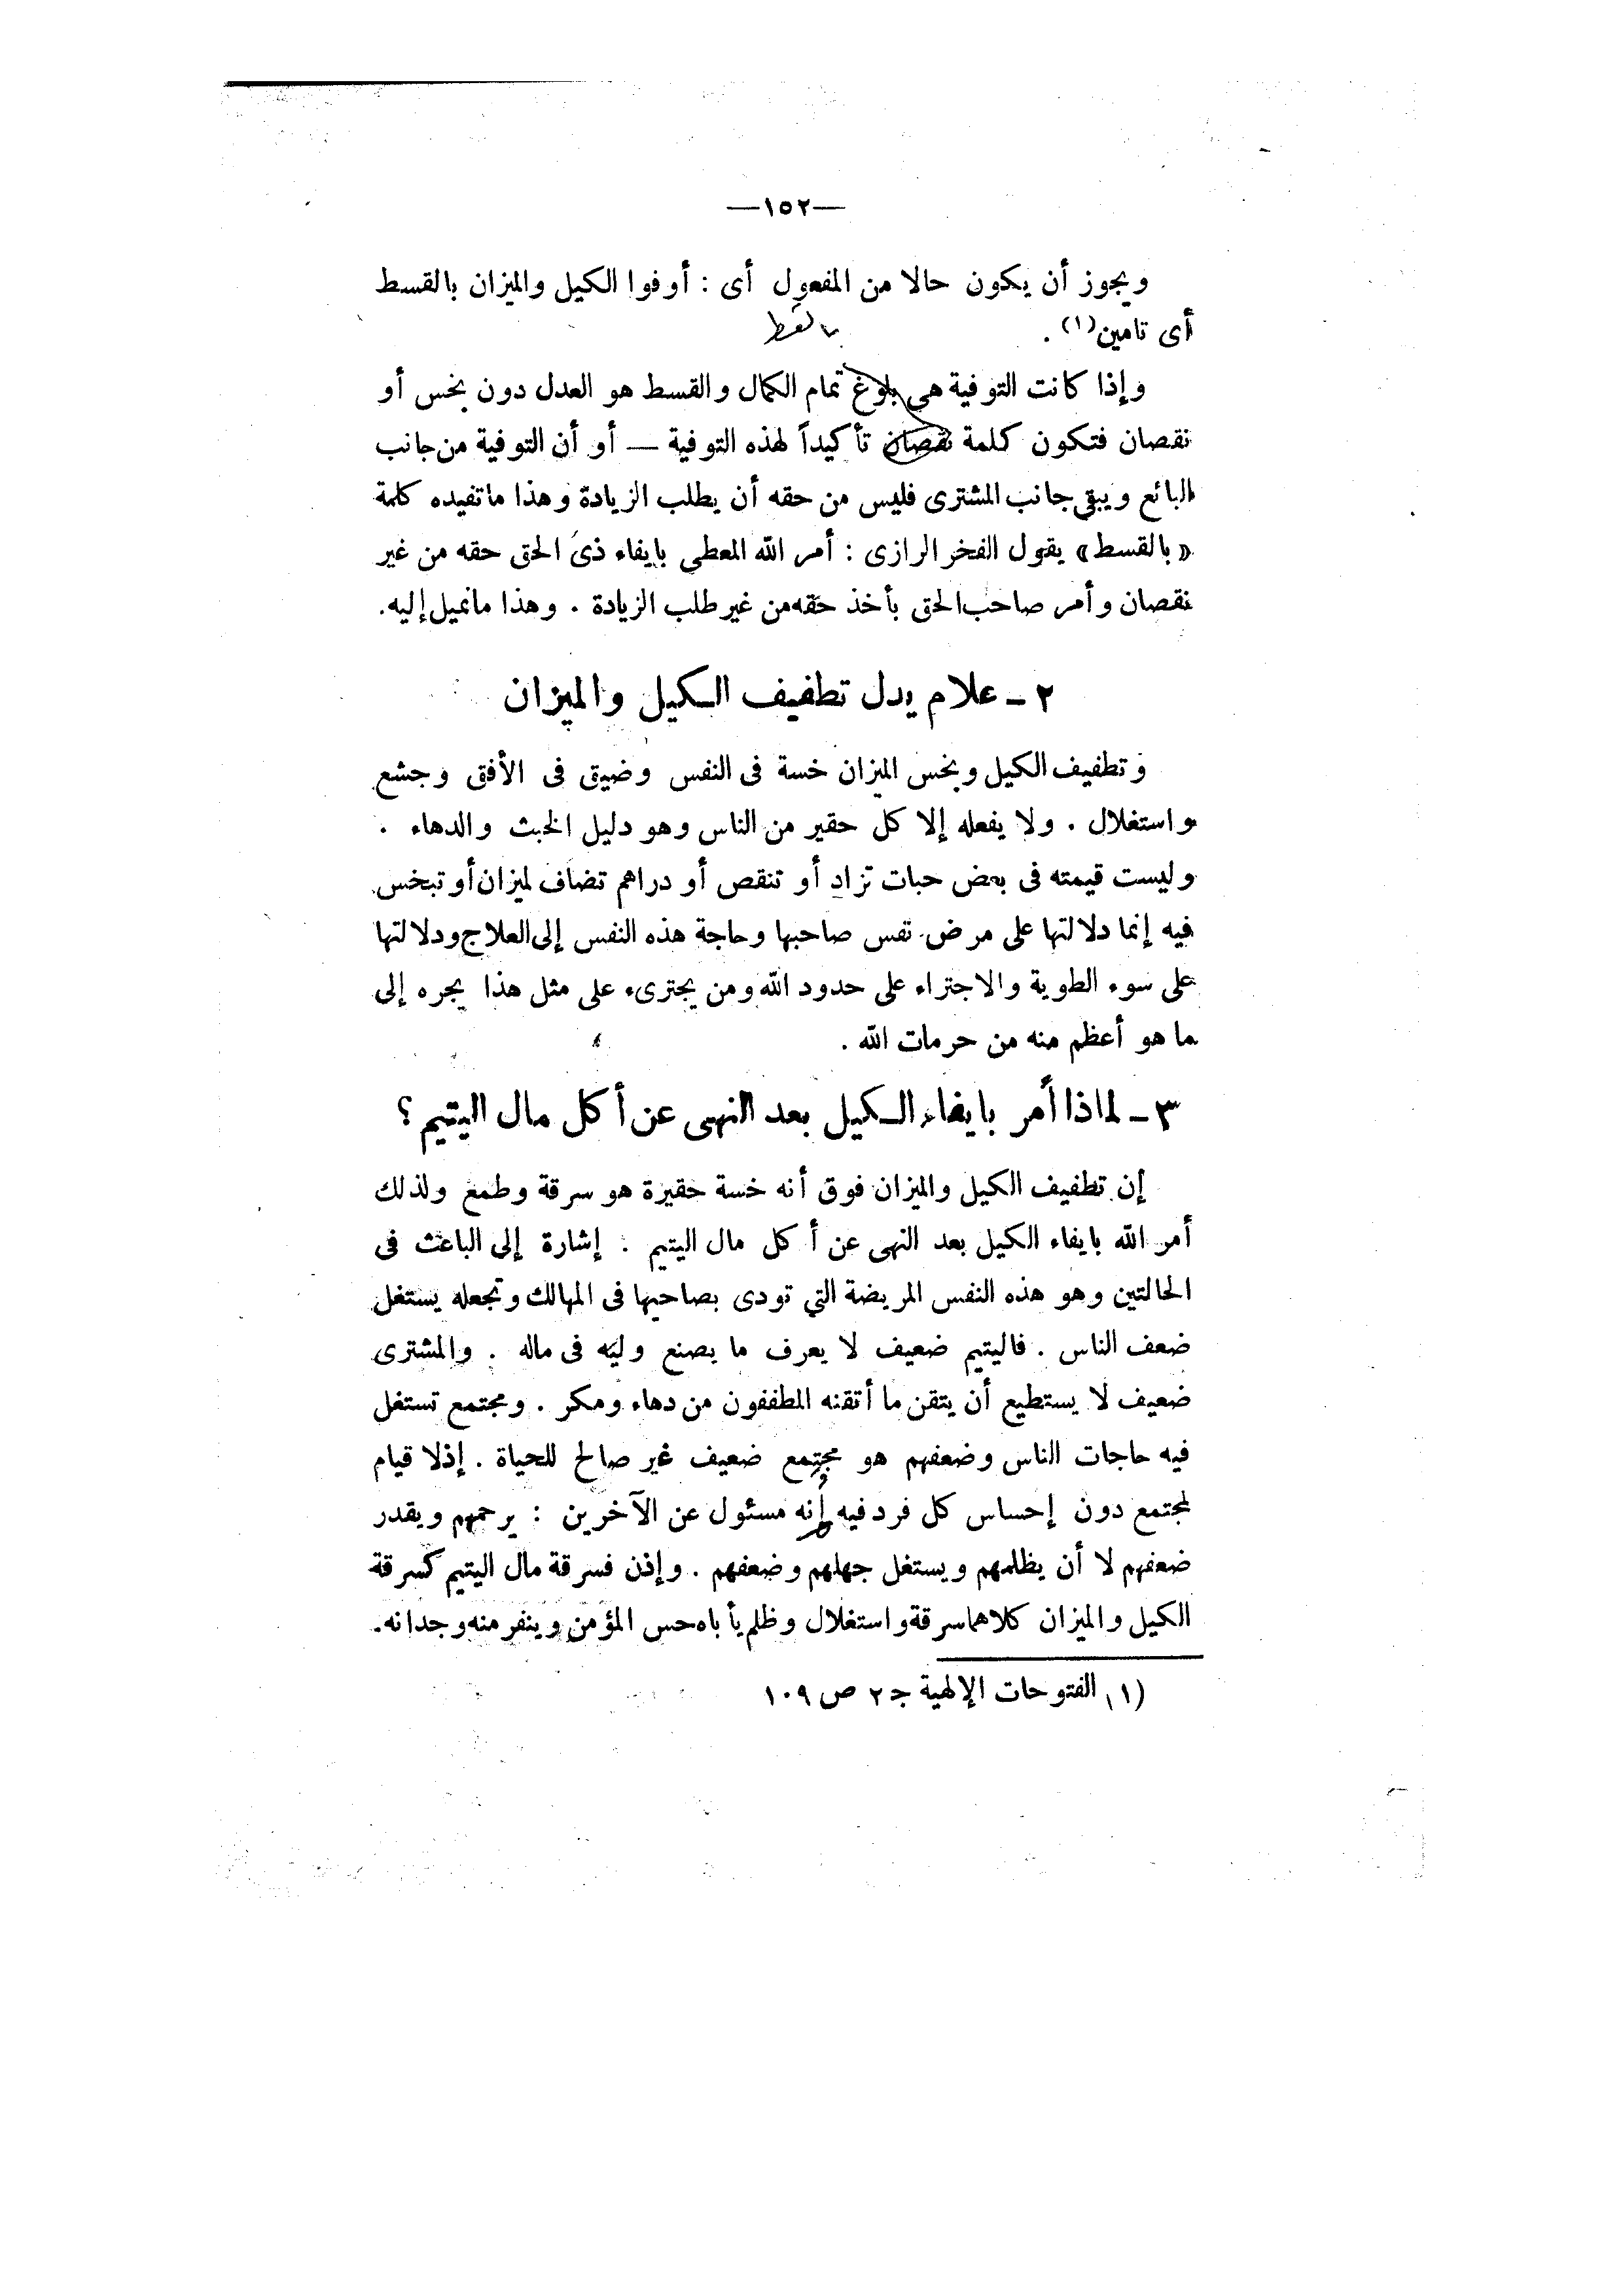 —١٥٢—
ويجوز أن يكون حالا من المفعول أى : أوفوا الكيل والميزان بالقسط
أى تامين(١) .
بالقسط
وإذا كانت التوفية هى بلوغ تمام الكمال والقسط هو العدل دون بخس أو
نقصان فتكون كلمة نقصان تأكيداً لهذه التوفية — أو أن التوفية من جانب
البائع ويبقى جانب المشترى فليس من حقه أن يطلب الزيادة وهذا ما تفيده كلمة
« بالقسط » يقول الفخر الرازى : أمر الله المعطى بإيفاء ذى الحق حقه من غير
نقصان وأمر صاحب الحق بأخذ حقه من غير طلب الزيادة . وهذا ما نميل إليه.
٢ – علام يدل تطفيف الكيل والميزان
وتطفيف الكيل وبخس الميزان خسة فى النفس وضيق فى الأفق وجشع
واستغلال . ولا يفعله إلا كل حقير من الناس وهو دليل الخبث والدهاء .
وليست قيمته فى بعض حبات تزاد أو تنقص أو دراهم تضاف لميزان أو تبخس
فيه إنما دلالتها على مرض نفس صاحبها وحاجة هذه النفس إلى العلاج ودلالتها
على سوء الطوية والاجتراء على حدود الله ومن يجترىء على مثل هذا يجره إلى
ما هو أعظم منه من حرمات الله .
٣ – لماذا أمر بايفاء الكيل بعد النهى عن أكل مال اليتيم ؟
إن تطفيف الكيل والميزان فوق أنه خسة حقيرة هو سرقة وطمع ولذلك
أمر الله بايفاء الكيل بعد النهى عن أكل مال اليتيم : إشارة إلى الباعث فى
الحالتين وهو هذه النفس المريضة التى تودى بصاحبها فى المهالك وتجعله يستغل
ضعف الناس . فاليتيم ضعيف لا يعرف ما يصنع وليه فى ماله . والمشترى
ضعيف لا يستطيع أن يتقن ما أتقنه المطففون من دهاء ومكر . ومجتمع تستغل
فيه حاجات الناس وضعفهم هو مجتمع ضعيف غير صالح للحياة . إذلا قيام
لمجتمع دون إحساس كل فرد فيه أنه مسئول عن الآخرين : يرحمهم ويقدر
ضعفهم لا أن يظلمهم ويستغل جهلهم وضعفهم . وإذن فسرقة مال اليتيم كسرقة
الكيل والميزان كلاهما سرقة واستغلال وظلم يأباه حس المؤمن وينفر منه وجدانه.
(١) الفتوحات الإلهية ج ٢ ص ١٠٩